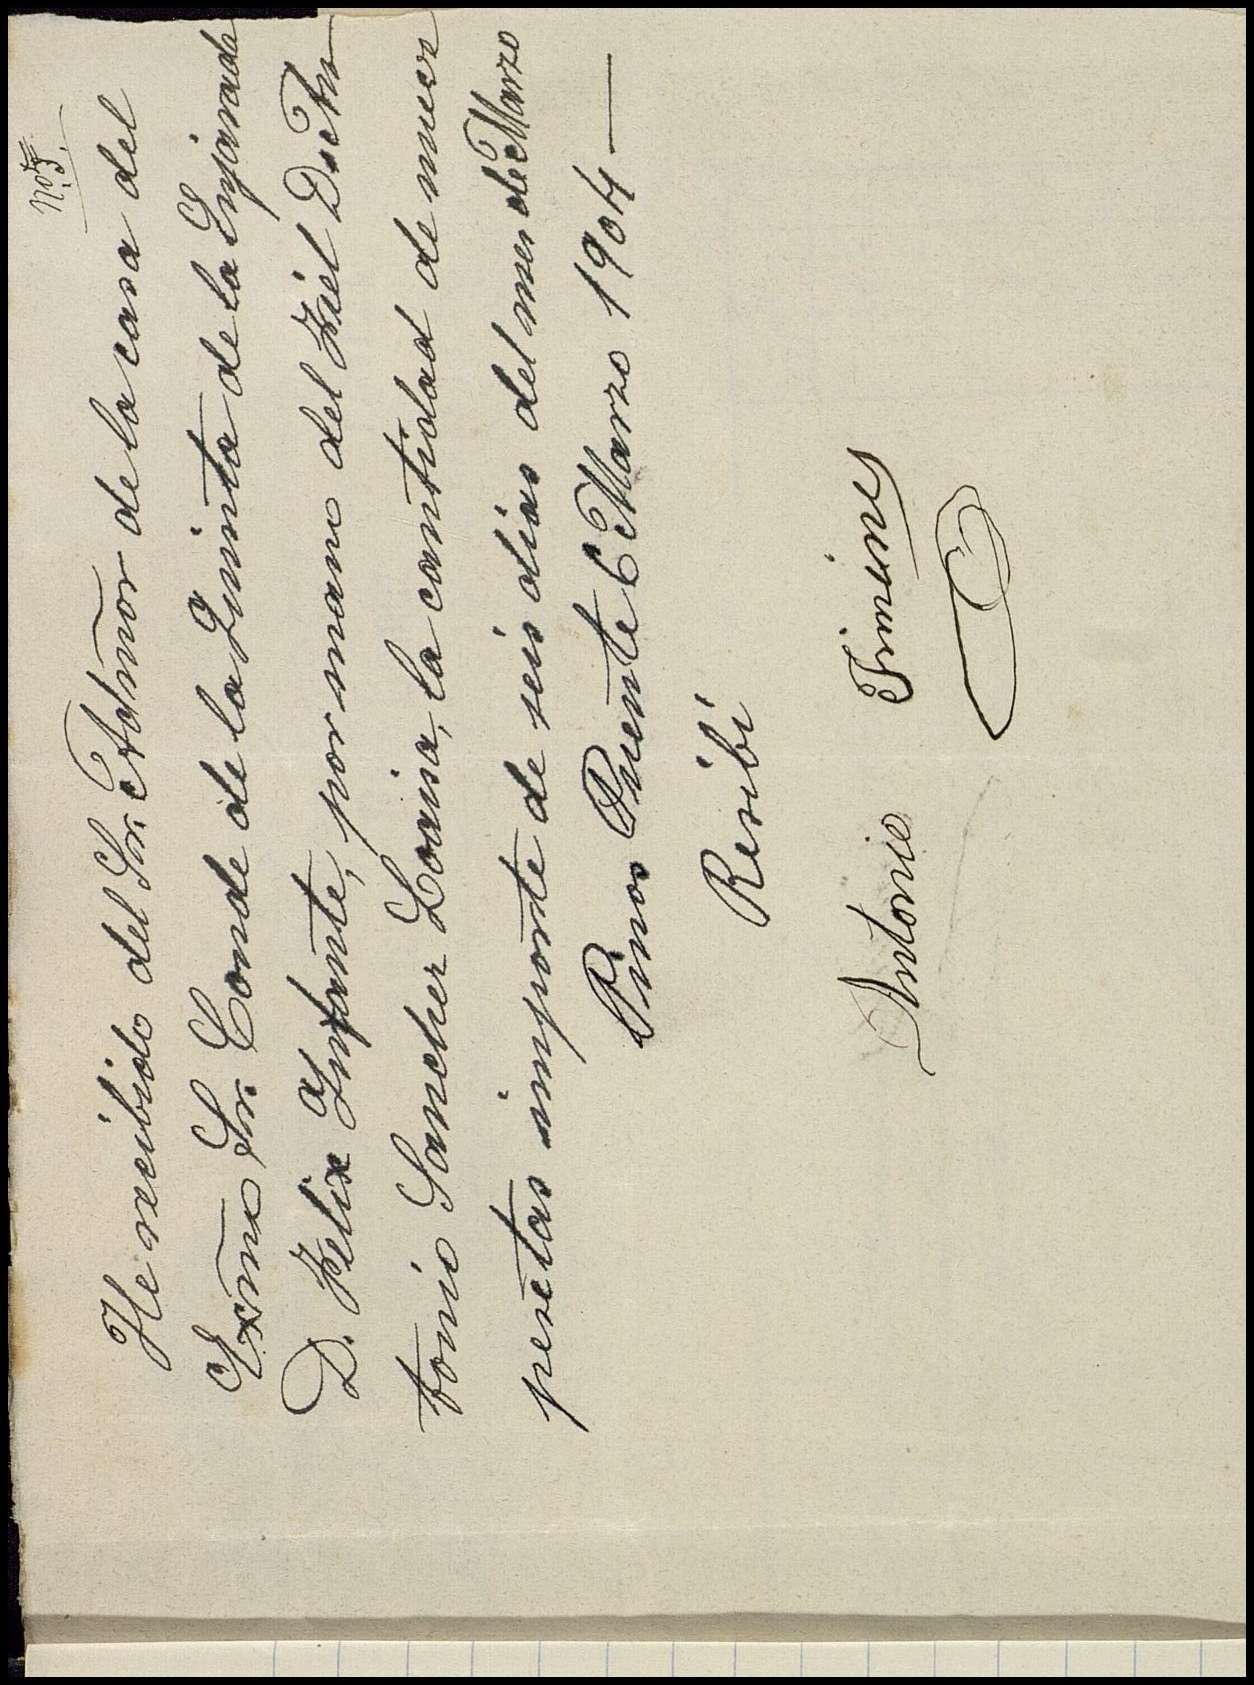 Nº 3.
He recibido del Sr. Admor de la casa del
Exmo Sr. Conde de la Quinta de la Enjarada
D. Felix Infante, por mano del Fiel D. Antº
tonio Sanchez Loaisa, la cantidad de nueve
pesetas importe de seis dias del mes de Marzo
Pinos Puente 6 Marzo 1904
Recibi
Antonio Jimenez